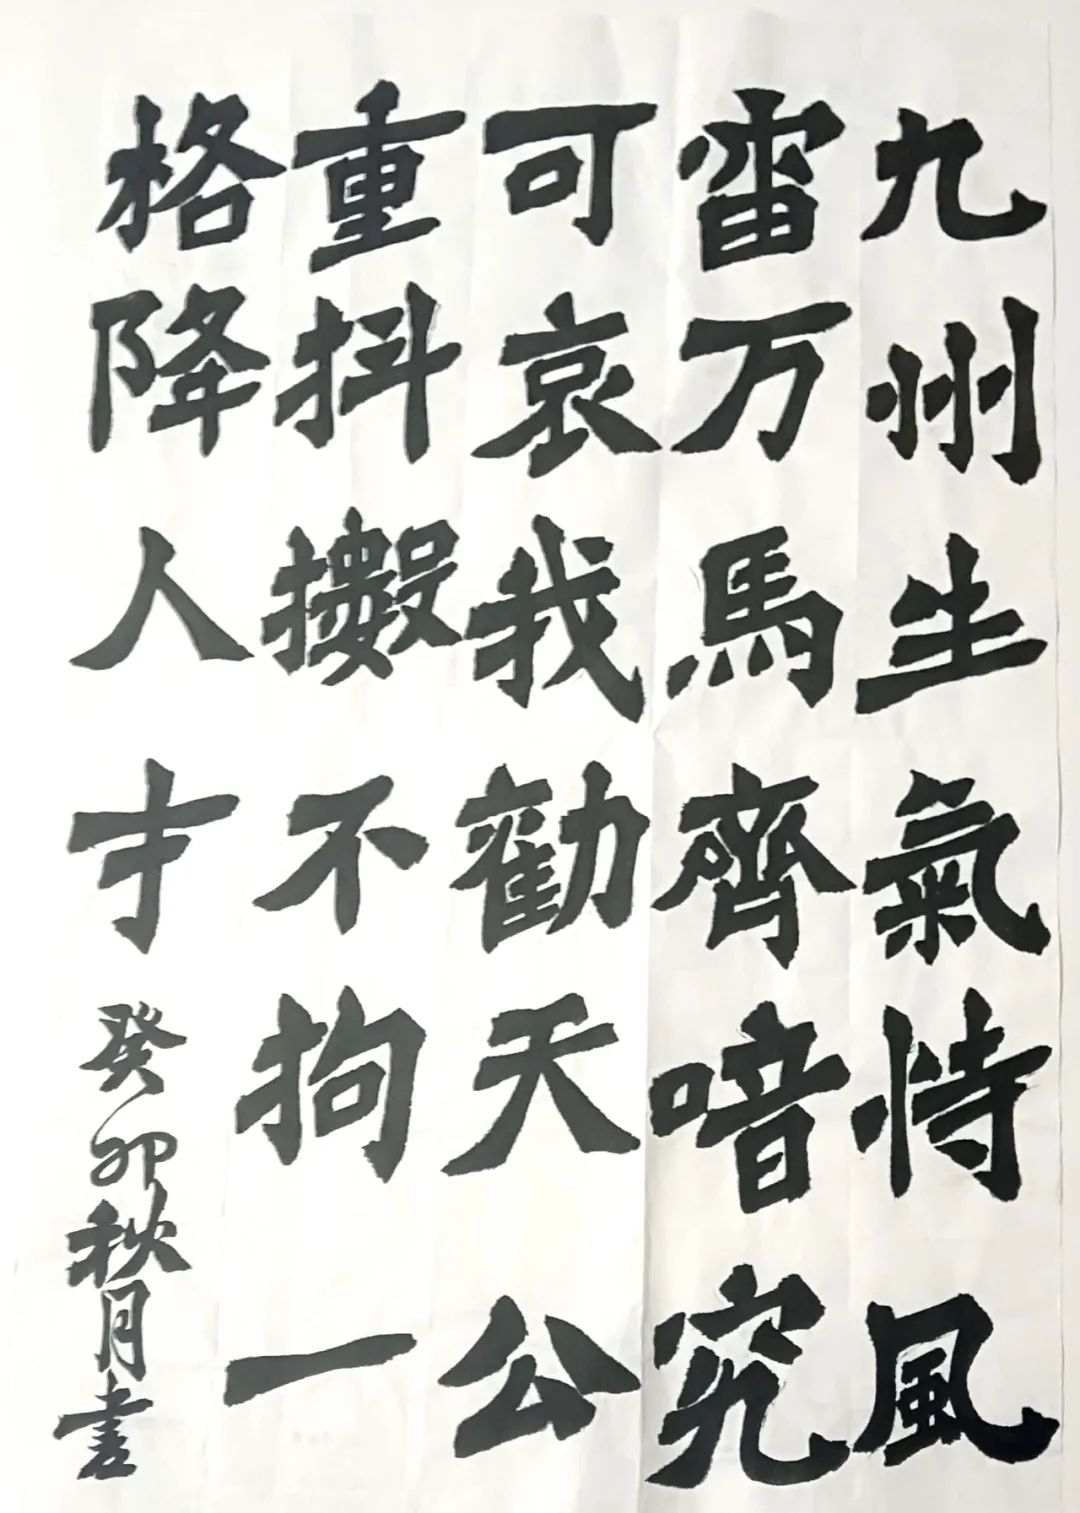 九州生氣恃風
雷万馬齊喑究
可哀我勸天公
重抖擻不拘一
格降人才
癸卯秋月書